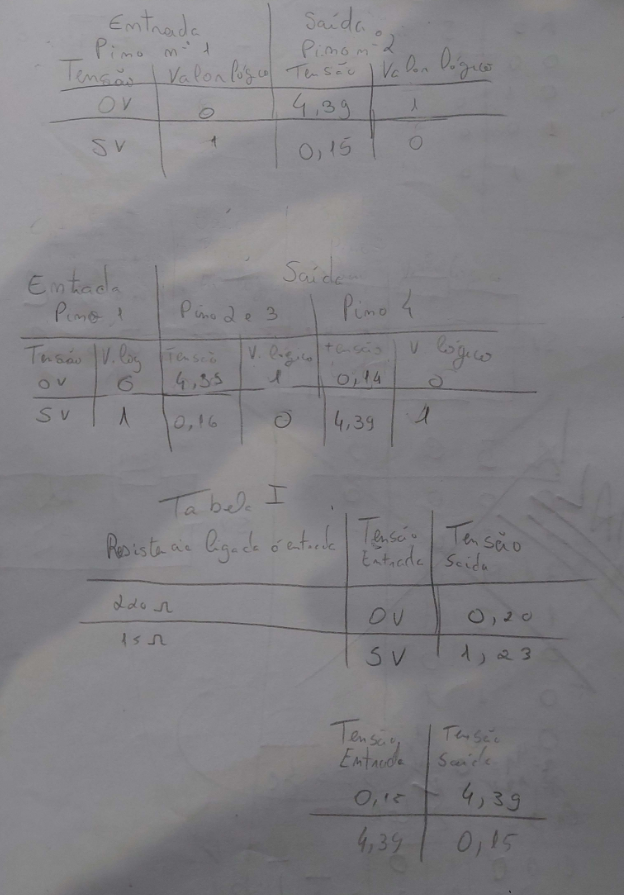 Entrada Saída
Pino nº 1 Pino nº 2
Tensão Valor lógico Tensão Valor lógico
0V 0 4,39 1
5V 1 0,15 0
Entrada Saída
Pino 1 Pino 2 e 3 Pino 4
Tensão V. log Tensão V. lógico tensão V lógico
0V 0 4,39 1 0,14 0
5V 1 0,16 0 4,39 1
Tabela I
Resistencia ligada á entrada Tensão Entrada Tensão Saida
220 Ω 0V 0,20
1 5V 1,23
Tensão Tensão
Entrada Saida
4,39
4,39 0,15